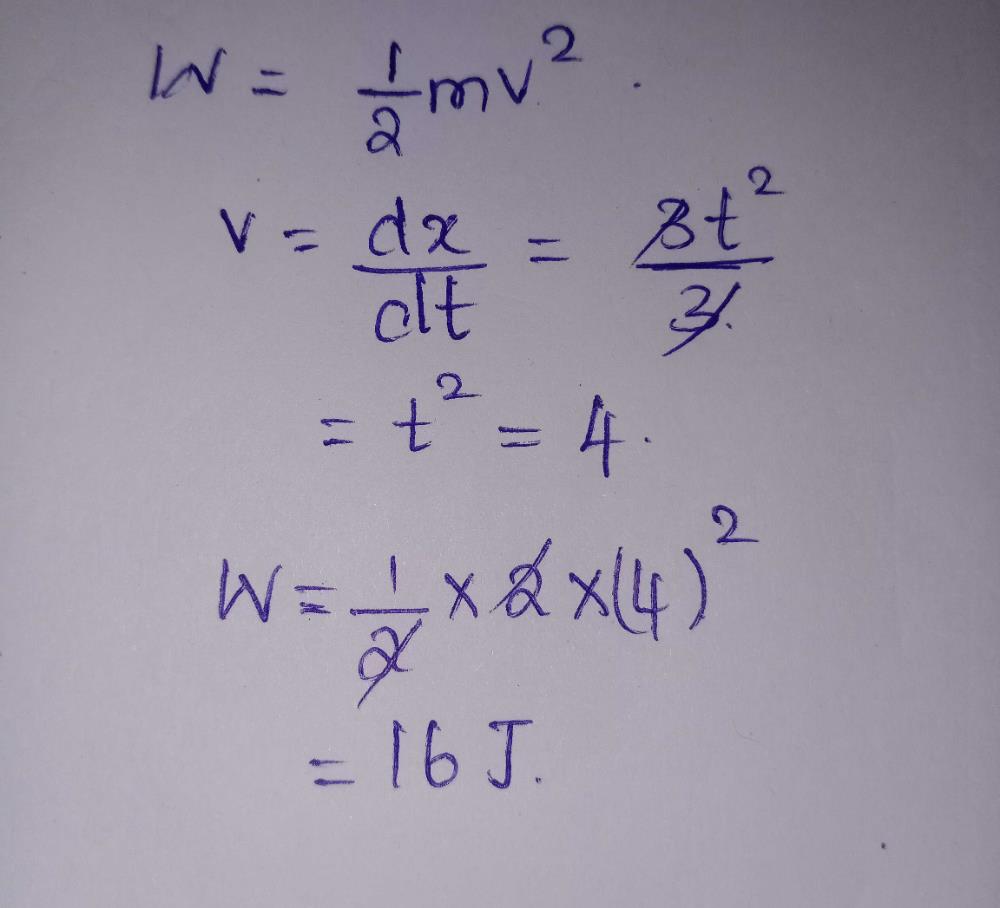 W = 1/2 mv²
v = dx/dt = 3t²/3
= t² = 4.
W = 1/2 × 2 × (4)²
= 16 J.